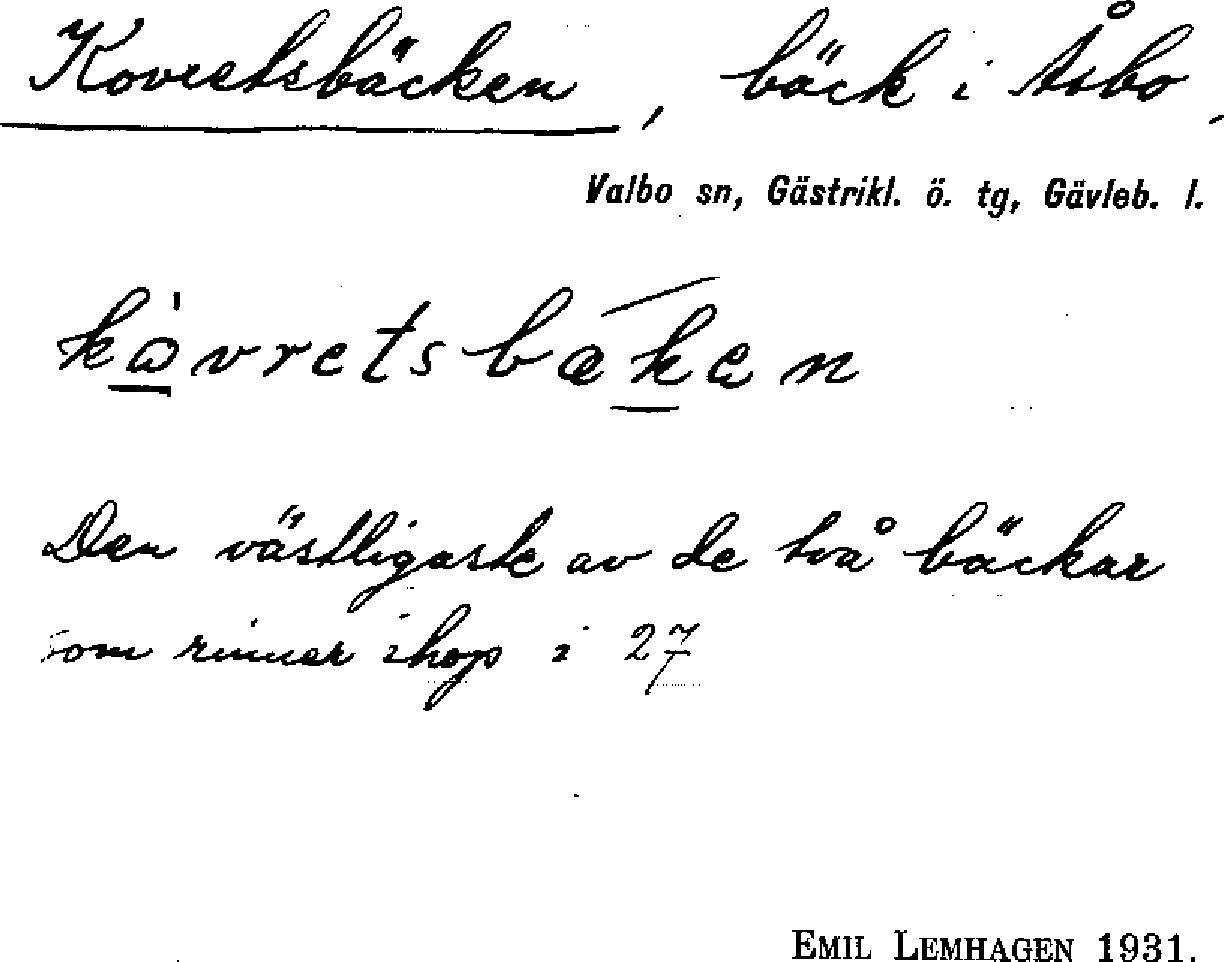 Kovretsbäcken, bäck i Åsbo,
Valbo sn, Gästrikl. ö. tg, Gävleb. l.
kὼ̲vretsbæk̲en
Den västligaste av de två bäckar
som rinner ihop i 27
EMIL LEMHAGEN 1931.